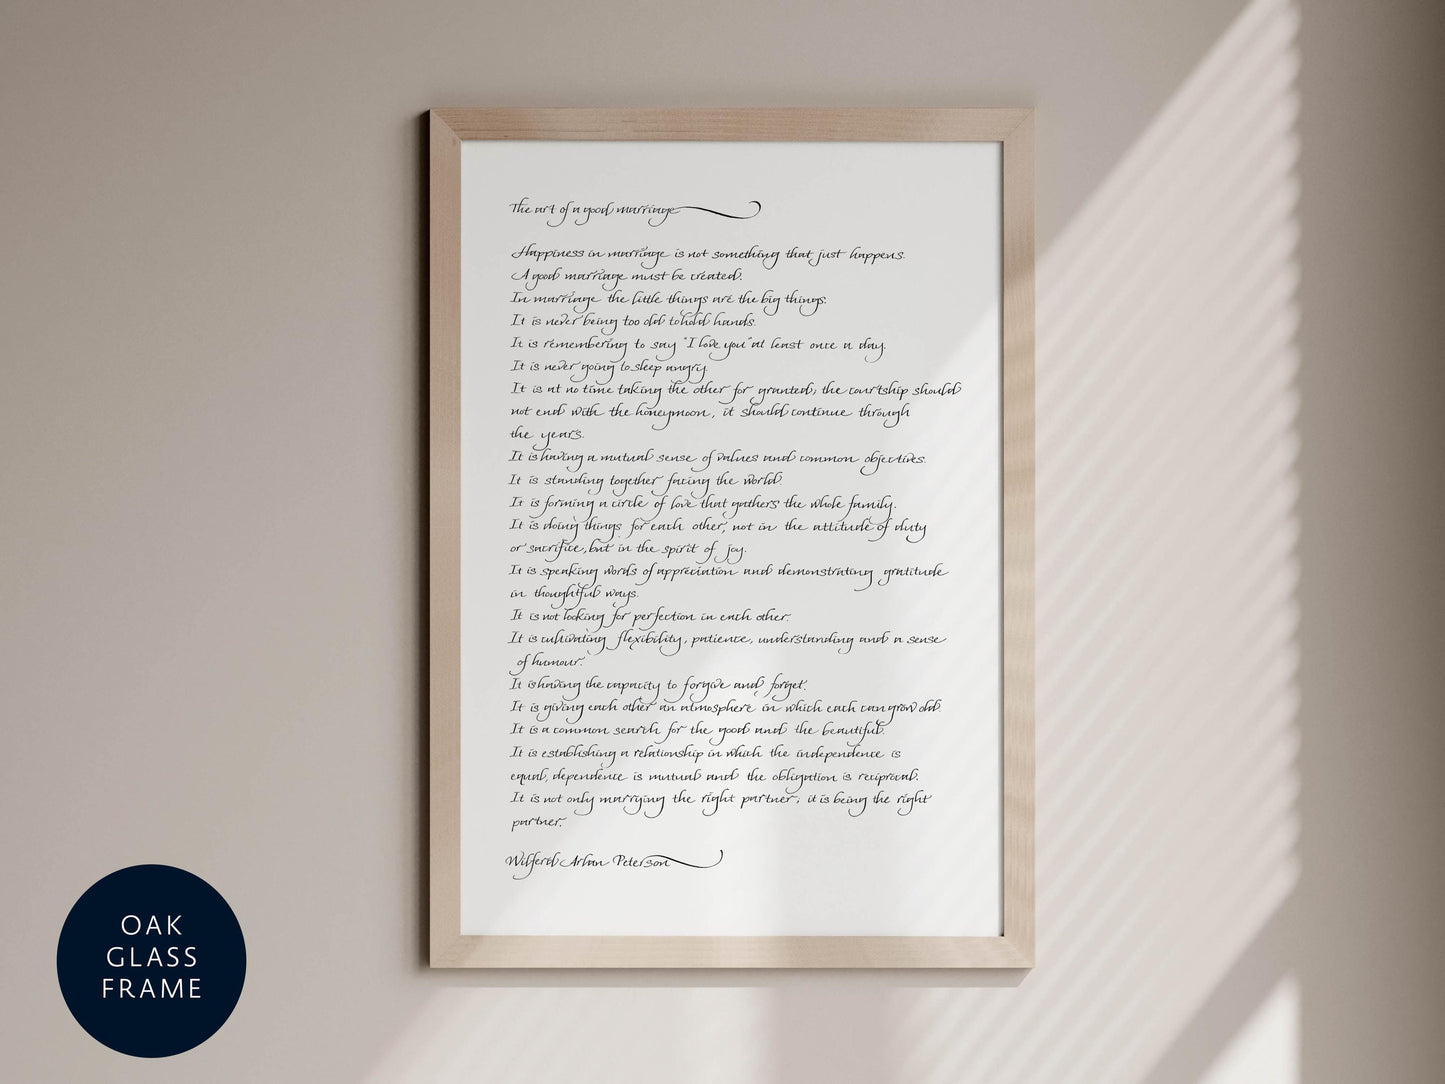 The art of a good marriage
Happiness in marriage is not something that just happens.
A good marriage must be created.
In marriage the little things are the big things.
It is never being too old to hold hands.
It is remembering to say "I love you" at least once a day.
It is never going to sleep angry.
It is at no time taking the other for granted; the courtship should
not end with the honeymoon, it should continue through
the years.
It is having a mutual sense of values and common objectives.
It is standing together facing the world.
It is forming a circle of love that gathers the whole family.
It is doing things for each other, not in the attitude of duty
or sacrifice, but in the spirit of joy.
It is speaking words of appreciation and demonstrating gratitude
in thoughtful ways.
It is not looking for perfection in each other.
It is cultivating flexibility, patience, understanding and a sense
of humour.
It is having the capacity to forgive and forget.
It is giving each other an atmosphere in which each can grow old.
It is a common search for the good and the beautiful.
It is establishing a relationship in which the independence is
equal, dependence is mutual and the obligation is reciprocal.
It is not only marrying the right partner, it is being the right
partner.
Wilferd Arlan Peterson
OAK
GLASS
FRAME